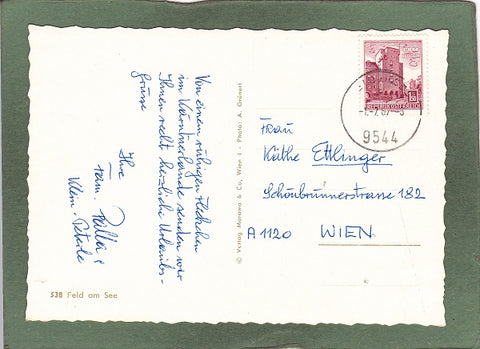 Von einem ruhigen Fleckchen
im Kärntnerlande senden wir
Ihnen recht herzliche Urlaubs-
grüsse
Ihre
Fam.
Klein.
538 Feld am See
© Verlag Marews & Co., Wien I - Photo: A. Grünert
REPUBLIK ÖSTERREICH
9544
Frau
Käthe Ettlinger
Schönbrunnerstrasse 182
A 1120 WIEN